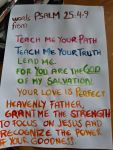 words PSALM 25:4-9
from
TEACH ME YOUR PATH
TEACH ME YOUR TRUTH
LEAD ME
FOR YOU ARE THE GOD
OF MY SALVATION.
YOUR LOVE IS PERFECT
HEAVENLY FATHER,
GRANT ME THE STRENGTH
TO FOCUS ON JESUS AND
RECOGNIZE THE POWER
OF YOUR GOODNESS